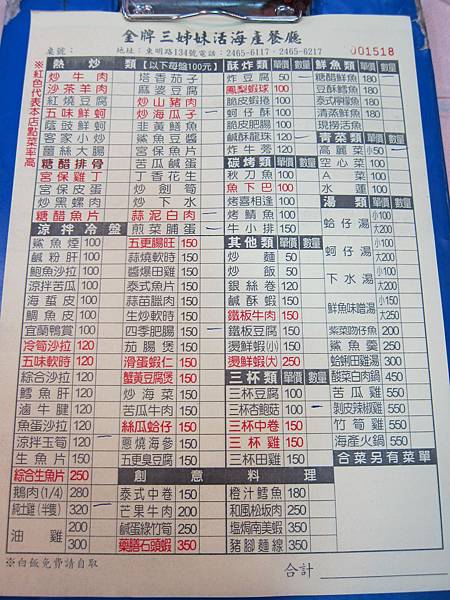 金牌三姊妹活海產餐廳
桌號： 地址：東明路134號電話：2465-6117．2465-6217 001518
※紅色代表本店點菜率高
熱炒類【以下每盤100元】
炒牛肉 塔香茄子
沙茶羊肉 麻婆豆腐
紅燒豆腐 炒山豬肉
五味鮮蚵 炒海瓜子
蔭豉鮮蚵 韭黃鱔魚
客家小炒 鯊魚豆醬
薑絲大腸 宮保魚片
糖醋排骨 苦瓜鹹蛋
宮保雞丁 丁香花生
宮保皮蛋 炒劍筍
炒黑螺肉 炒下水
糖醋魚片 蒜泥白肉
煎菜脯蛋
涼拌冷盤
鯊魚煙 100
鹹粉肝 100
鮑魚沙拉 100
涼拌苦瓜 100
海蜇皮 100
鯛魚皮 100
宜蘭鴨賞 100
冷筍沙拉 120
五味軟時 120
綜合沙拉 120
鱈魚肝 120
滷牛腱 120
魚蛋沙拉 120
涼拌玉筍 120
生魚片 150
綜合生魚片 250
鵝肉(1/4) 280
純土雞(半隻) 320
油雞 200
300
五更腸旺 150
蒜燒軟時 150
醬爆田雞 150
泰式魚片 150
蒜苗臘肉 150
生炒軟時 150
四季肥腸 150
茄腸煲 150
滑蛋蝦仁 150
蟹黃豆腐煲 150
炒海菜 150
苦瓜牛肉 150
絲瓜蛤仔 150
蔥燒海參 150
五更臭豆腐 150
酥炸類 單價 數量
炸豆腐 50
鳳梨蝦球 100
脆皮蝦捲 100
蚵仔酥 100
脆皮肥腸 100
鹹酥龍珠 120
炸牛蒡 120
碳烤類 單價 數量
秋刀魚 100
魚下巴 100
烤喜相逢 100
烤鯖魚 100
牛小排 150
其他類 單價 數量
炒麵 50
炒飯 50
銀絲卷 120
鹹酥蝦 150
鐵板牛肉 150
鐵板豆腐 150
燙鮮蝦(小) 150
燙鮮蝦(大) 250
三杯類 單價 數量
三杯豆腐 100
三杯杏鮑菇 100
三杯中卷 150
三杯雞 150
三杯田雞 150
鮮魚類 單價 數量
糖醋鮮魚 180
豆酥鱈魚 180
泰式檸檬魚 180
清蒸鮮魚 180
現撈活魚
青菜類 單價 數量
高麗菜 小50
空心菜 100
A菜 100
水蓮 100
湯類 單價 數量
蛤仔湯 小100
大200
蚵仔湯 小100
大200
下水湯 小100
大200
鮮魚味噌湯 小150
大250
紫菜吻仔魚 200
鯊魚羹 250
蛤蜊田雞湯 300
酸菜白肉鍋 450
苦瓜雞 550
剝皮辣椒雞 550
竹筍雞 550
海產火鍋 550
合菜另有菜單
創意料理
泰式中卷 150
芒果牛肉 200
鹹蛋綠竹筍 250
藥膳石頭蝦 350
橙汁鱈魚 180
和風松坂肉 250
塩焗南美蝦 350
豬腳麵線 350
※白飯免費請自取
合計